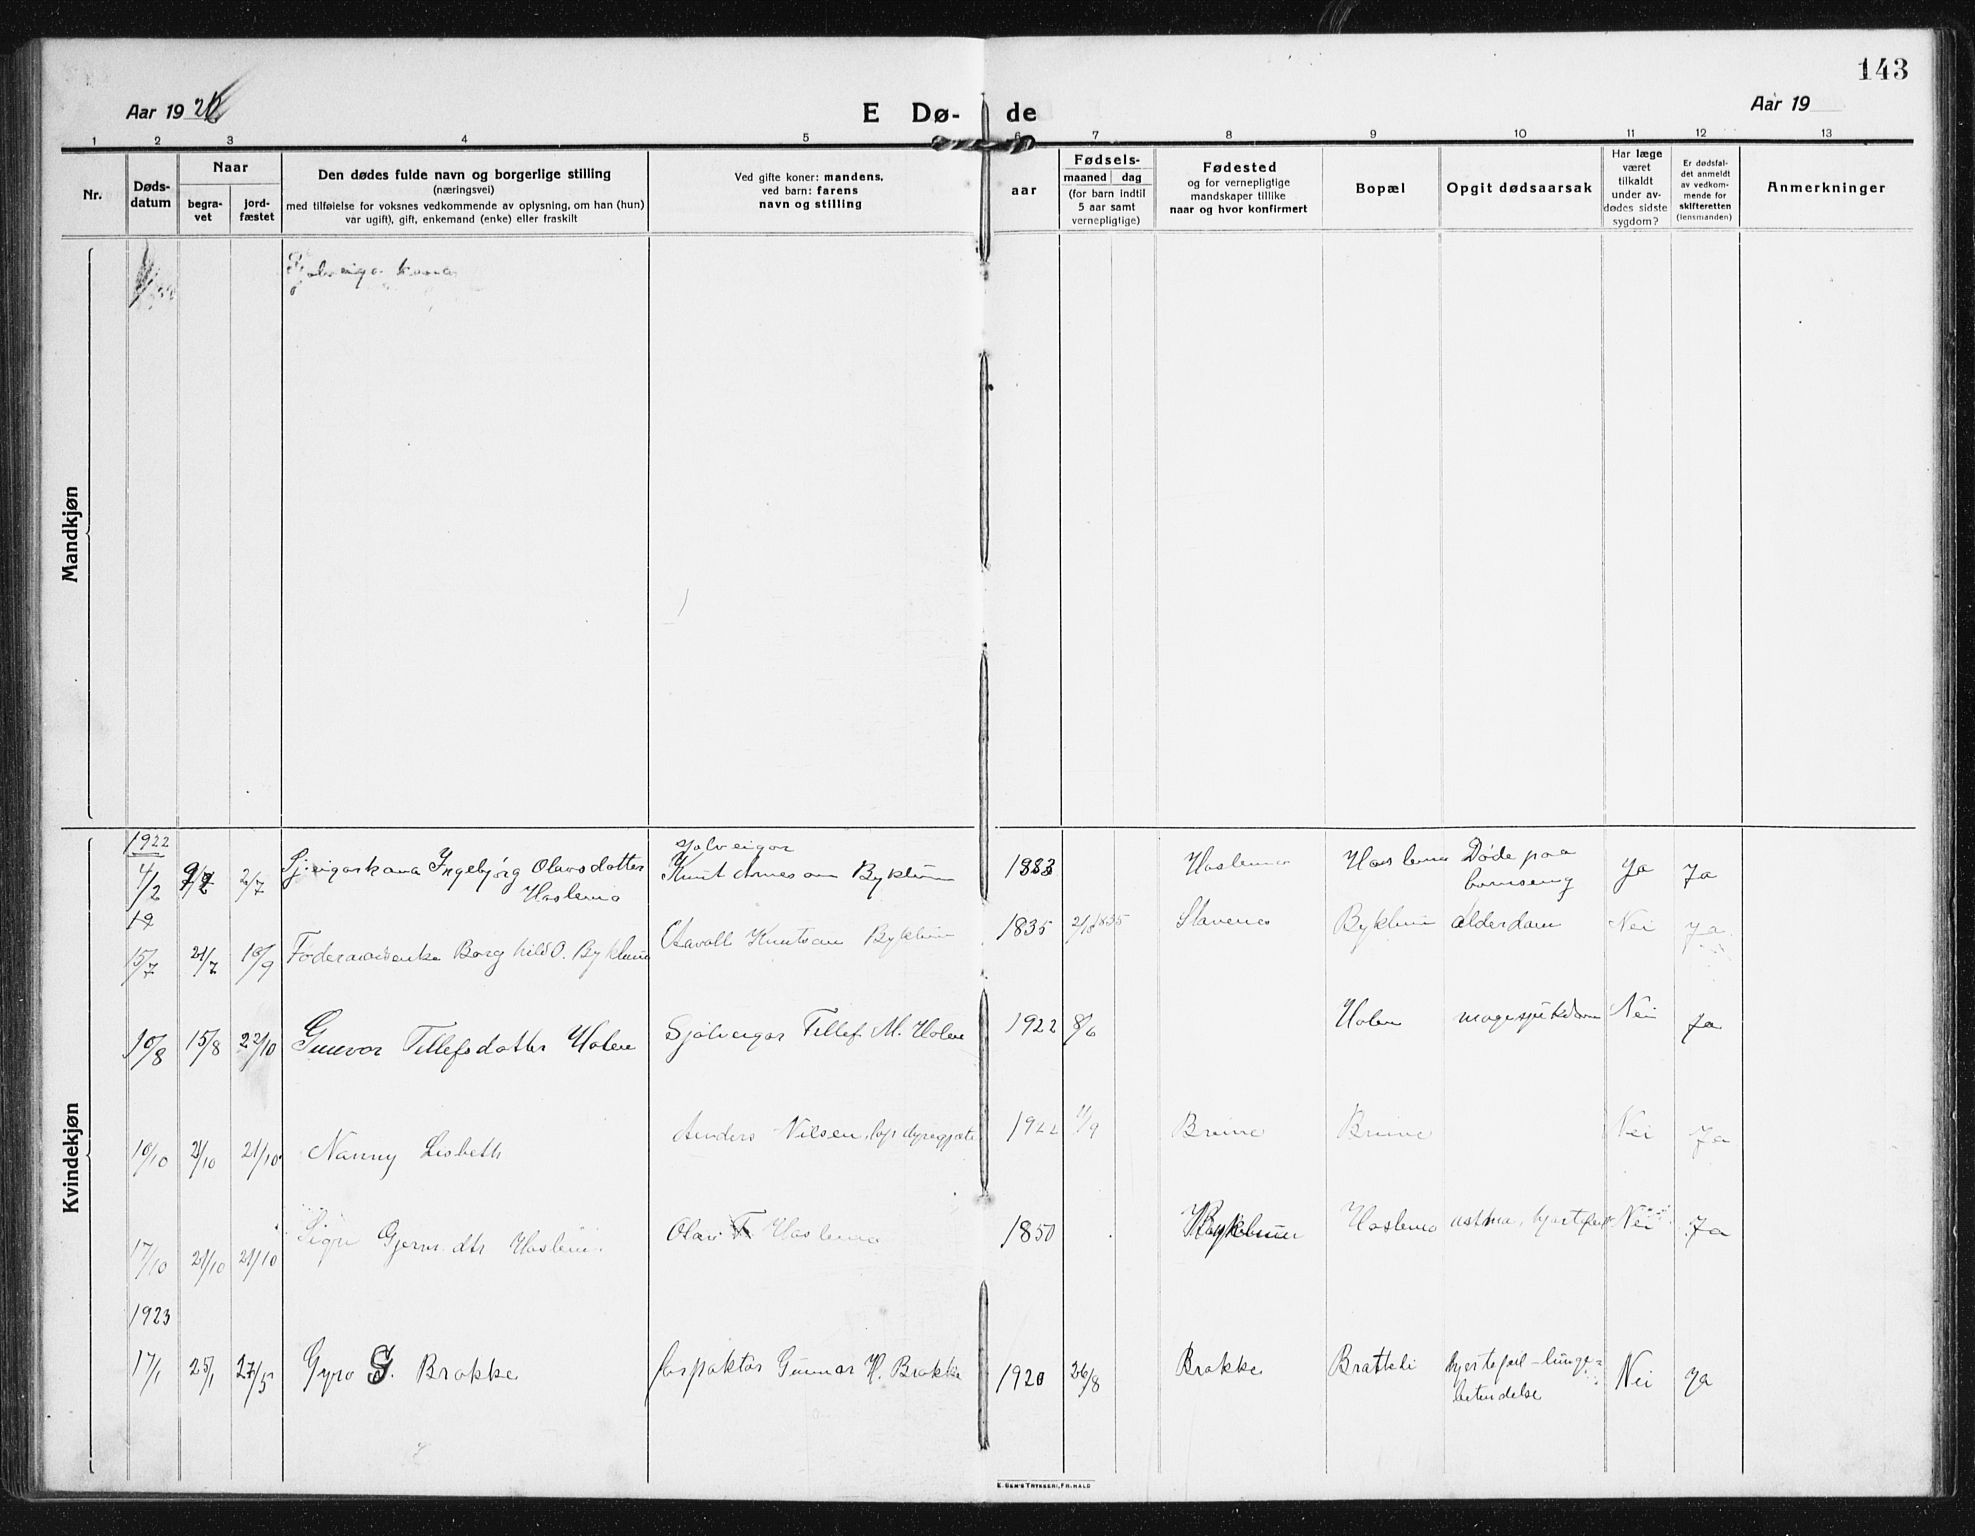 143
Aar 19
E Dø-
de
Aar 19
1 2 3 4 5 6 7 8 9 10 11 12 13
Nr.
Døds-
datum
Naar
begra-
vet
jord-
fæstet
Den dødes fulde navn og borgerlige stilling
(næringsvei)
med tilføielse for voksnes vedkommende av oplysning, om han (hun)
var ugift), gift, enkemand (enke) eller fraskilt
Ved gifte koner: mandens,
ved barn: farens
navn og stilling
aar
Fødsels-
maaned dag
(for barn indtil
5 aar samt
vernepligtige)
Fødested
og for vernepligtige
mandskaper tillike
naar og hvor konfirmert
Bopæl
Opgit dødsaarsak
Har læge
været
tilkaldt
under av-
dødes sidste
sygdom?
Er dødsfal-
det anmeldt
av vedkom-
mende for
skifteretten
(lensmanden)
Anmerkninger
Mandkjøn
Kvindekjøn
1922
4/2 2/7 Ingebjørg Olavsdatter Haslemo
Sjølveigar Knut Arneson Byklum 1883 Haslemo Haslemo Døde paa barnseng Ja Ja
15/7 21/7 18/9 Føderaadsenke Borghild O. Byklum Aavold Knutson Byklum 1835 1835 Stavenes Byklum alderdom Nei Ja
10/8 15/8 22/10 Gunvor Tellefsdatter Holen Sjølveigar Tellef M. Holen 1922 8/6 Holen magesjukdom Nei Ja
10/10 21/10 21/10 Nanny Lisbeth Anders Nilsen, 1922 Nei Ja
17/10 21/10 21/10 Sigri Gjerm.dtr Haslemo Olav T. Haslemo 1850 Byklum Haslemo astma, hjertefeil Nei Ja
1923
17/1 25/1 27/5 Gyro G. Brokke forpaktar Gunnar H. Brokke 1920 26/8 Brokke Bratteli hjertefeil - lunge-
betendelse Nei Ja
E. SEM'S TRYKKERI, FR.HALD